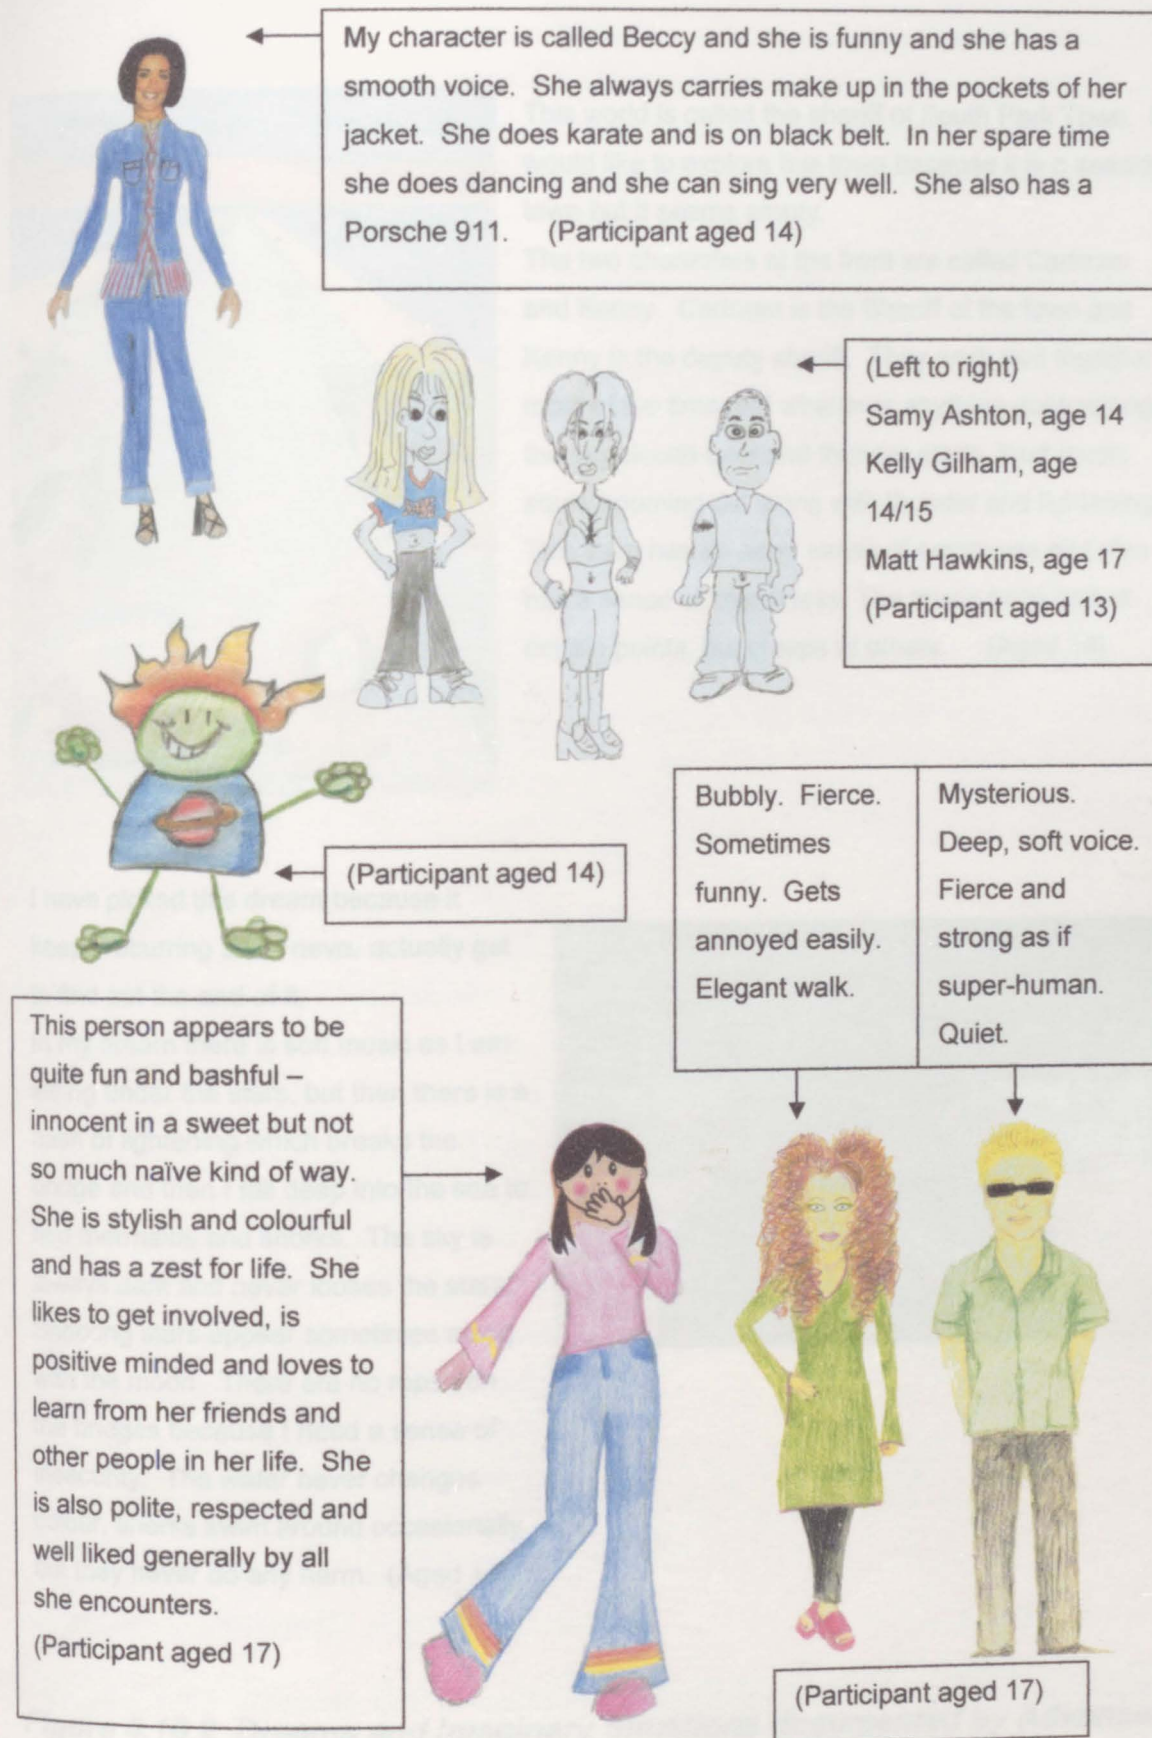 My character is called Beccy and she is funny and she has a
smooth voice. She always carries make up in the pockets of her
jacket. She does karate and is on black belt. In her spare time
she does dancing and she can sing very well. She also has a
Porsche 911. (Participant aged 14)
(Left to right)
Samy Ashton, age 14
Kelly Gilham, age
14/15
Matt Hawkins, age 17
(Participant aged 13)
(Participant aged 14)
Bubbly. Fierce.
Sometimes
funny. Gets
annoyed easily.
Elegant walk.
Mysterious.
Deep, soft voice.
Fierce and
strong as if
super-human.
Quiet.
This person appears to be
quite fun and bashful –
innocent in a sweet but not
so much naïve kind of way.
She is stylish and colourful
and has a zest for life. She
likes to get involved, is
positive minded and loves to
learn from her friends and
other people in her life. She
is also polite, respected and
well liked generally by all
she encounters.
(Participant aged 17)
(Participant aged 17)